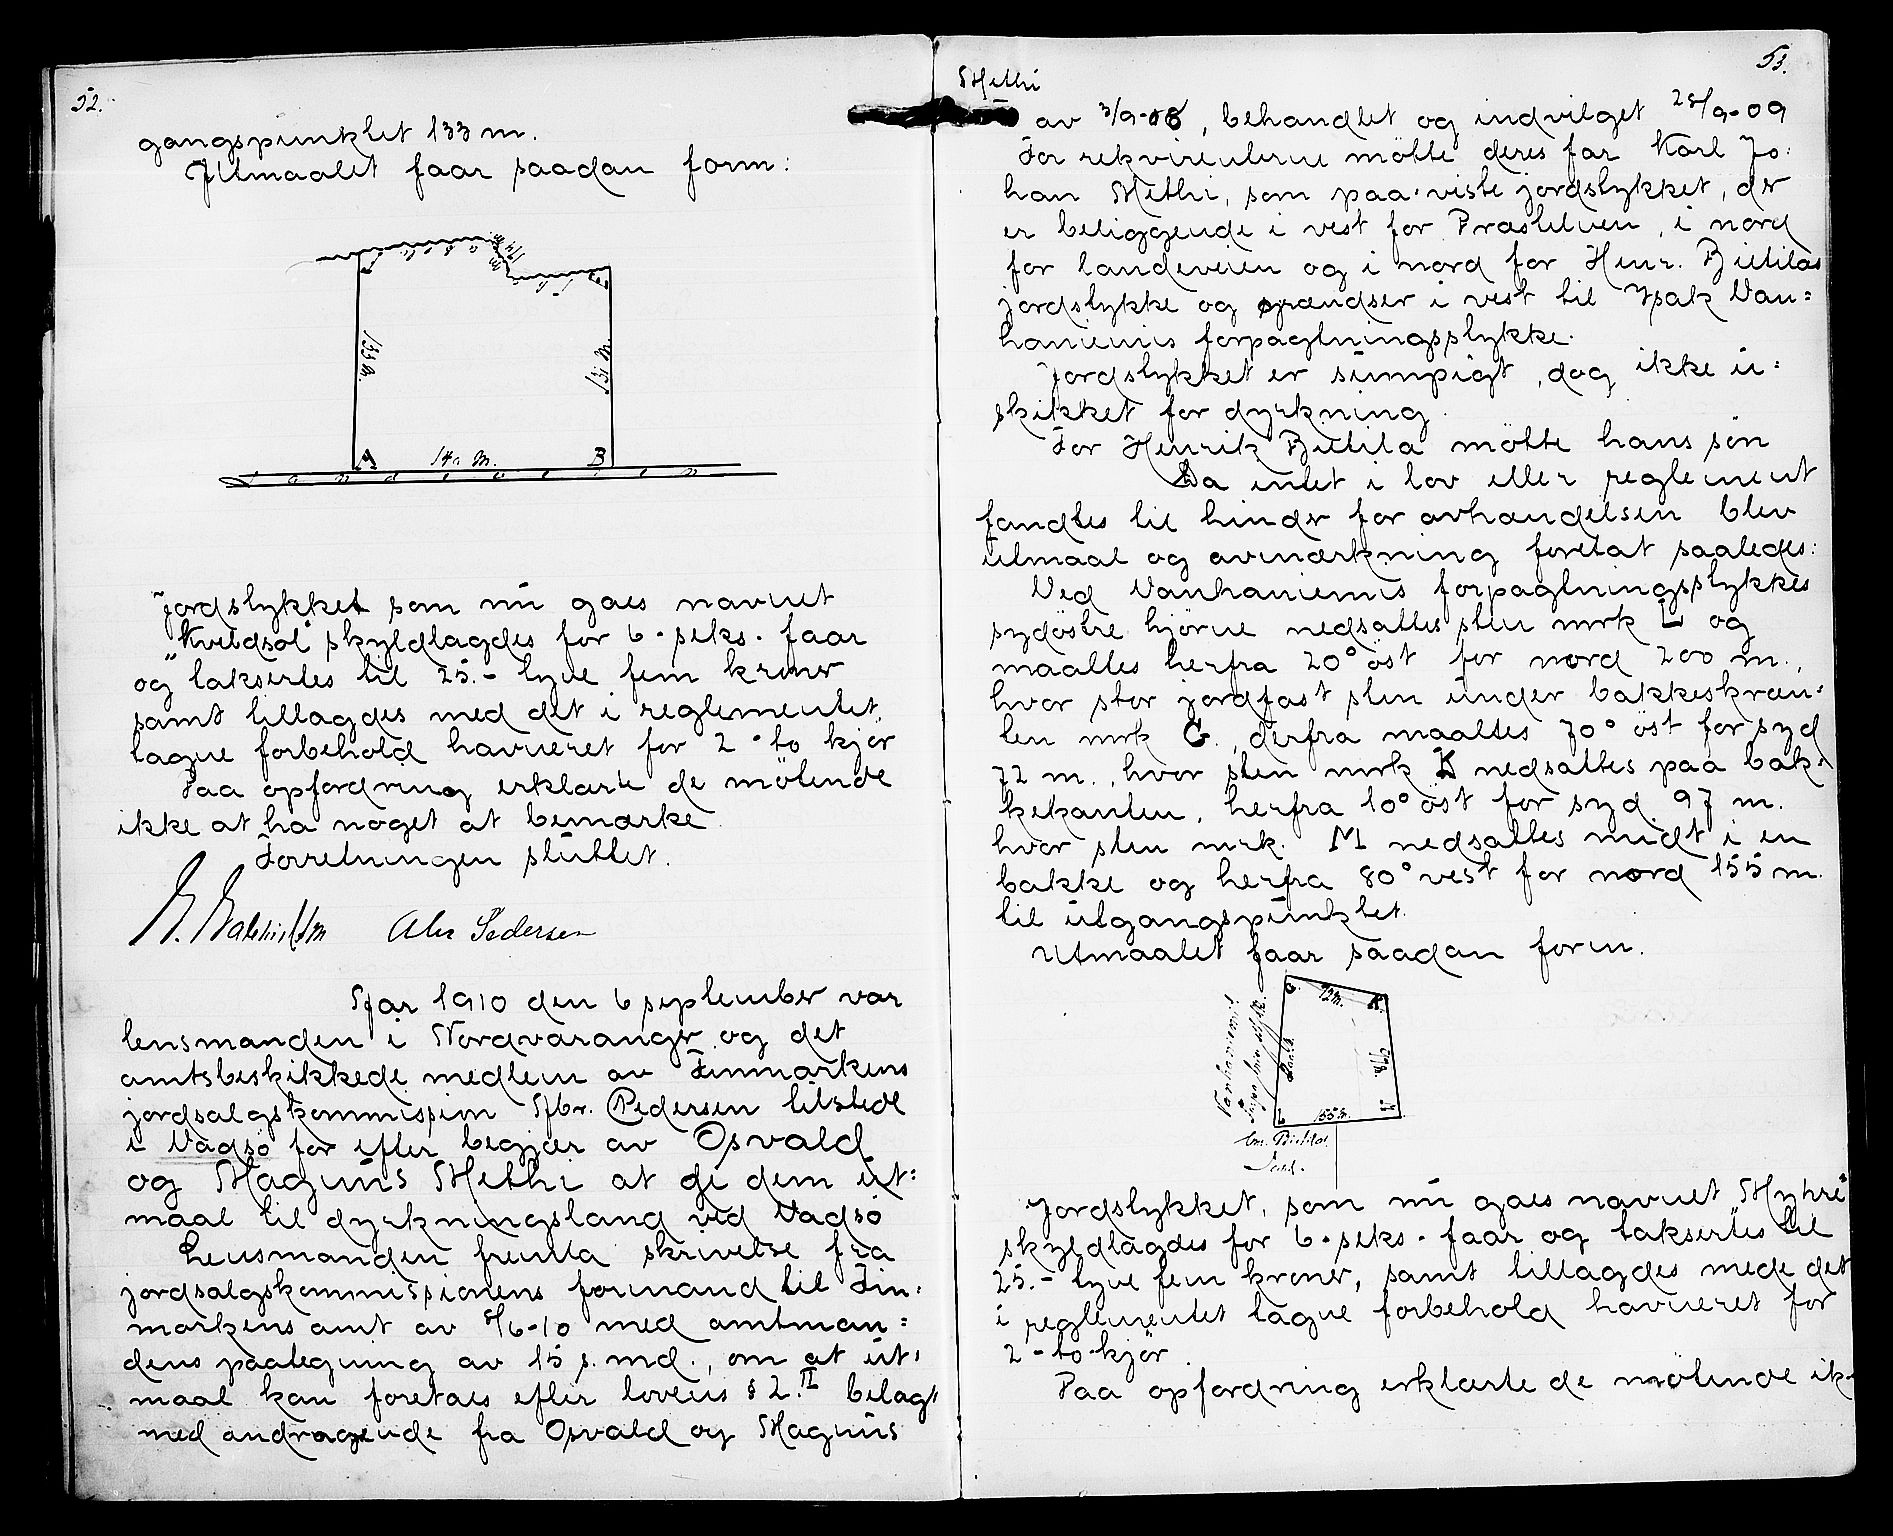 52.
gangspunktet 133 m.
Utmaalet faar saadan form:
133 m.
A 140 m. B
Landeveien
Jordstykket som nu gaes navnet
"Kveldsol" skyldlagdes for 6 - seks - faar
og taksertes til 25.- tyve fem kroner
samt tillagdes med det i reglementet
tagne forbehold havneret for 2 - to kjør
Paa opfordring erklærte de møtende
ikke at ha noget at bemærke.
Forretningen sluttet.
Alex Pedersen
Aar 1910 den 6 september var
lensmanden i Nordvaranger og det
amtsbeskikkede medlem av Finmarkens
jordsalgskommission Hr. Pedersen tilstede
i Vadsø for efter begjær av Osvald
og Magnus Methi at gi dem ut-
maal til dyrkningsland ved Vadsø
Lensmanden fremla skrivelse fra
jordsalgskommissionens formand til Fin-
markens amt av 8/6-10 med amtman-
dens paategning av 15 s. md., om at ut-
maal kan foretaes efter lovens § 2.II belagt
med andragende fra Osvald og Magnus
53.
Methi
av 3/9-08, behandlet og indvilget 28/9-09
For rekvirenterne møtte deres far Karl Jo-
han Methi, som paaviste jordstykket, der
er beliggende i vest for Præstelven, i nord
for landeveien og i nord for Henr. Bietilas
jordstykke og grændser i vest til Isak Van-
haniemis forpagtningsstykke.
Jordstykket er sumpigt, dog ikke u-
skikket for dyrkning.
For Henrik Bietila møtte hans søn
Da intet i lov eller reglement
fandtes til hinder for avhændelsen blev
utmaal og avmærkning foretat saaledes:
Ved Vanhaniemis forpagtningsstykkes
sydøstre hjørne nedsattes sten mrk L og
maaltes herfra 20° øst for nord 200 m.,
hvor stor jordfast sten under bakkeskræn-
ten mrk G., derfra maaltes 70° øst for syd
72 m., hvor sten mrk K nedsattes paa bak-
kekanten, herfra 10° øst for syd 97 m.
hvor sten mrk. M nedsattes midt i en
bakke og herfra 80° vest for nord 155 m.
til utgangspunktet.
Utmaalet faar saadan form.
G. 72 m. K.
97 m.
L 155 m.
Jordstykket, som nu gaes navnet "Myhre"
skyldlagdes for 6 - seks - faar og taksertes til
25.- tyve fem kroner, samt tillagdes mede det
i reglementet tagne forbehold havneret for
2 - to kjør.
Paa opfordring erklærte de møtende ik-